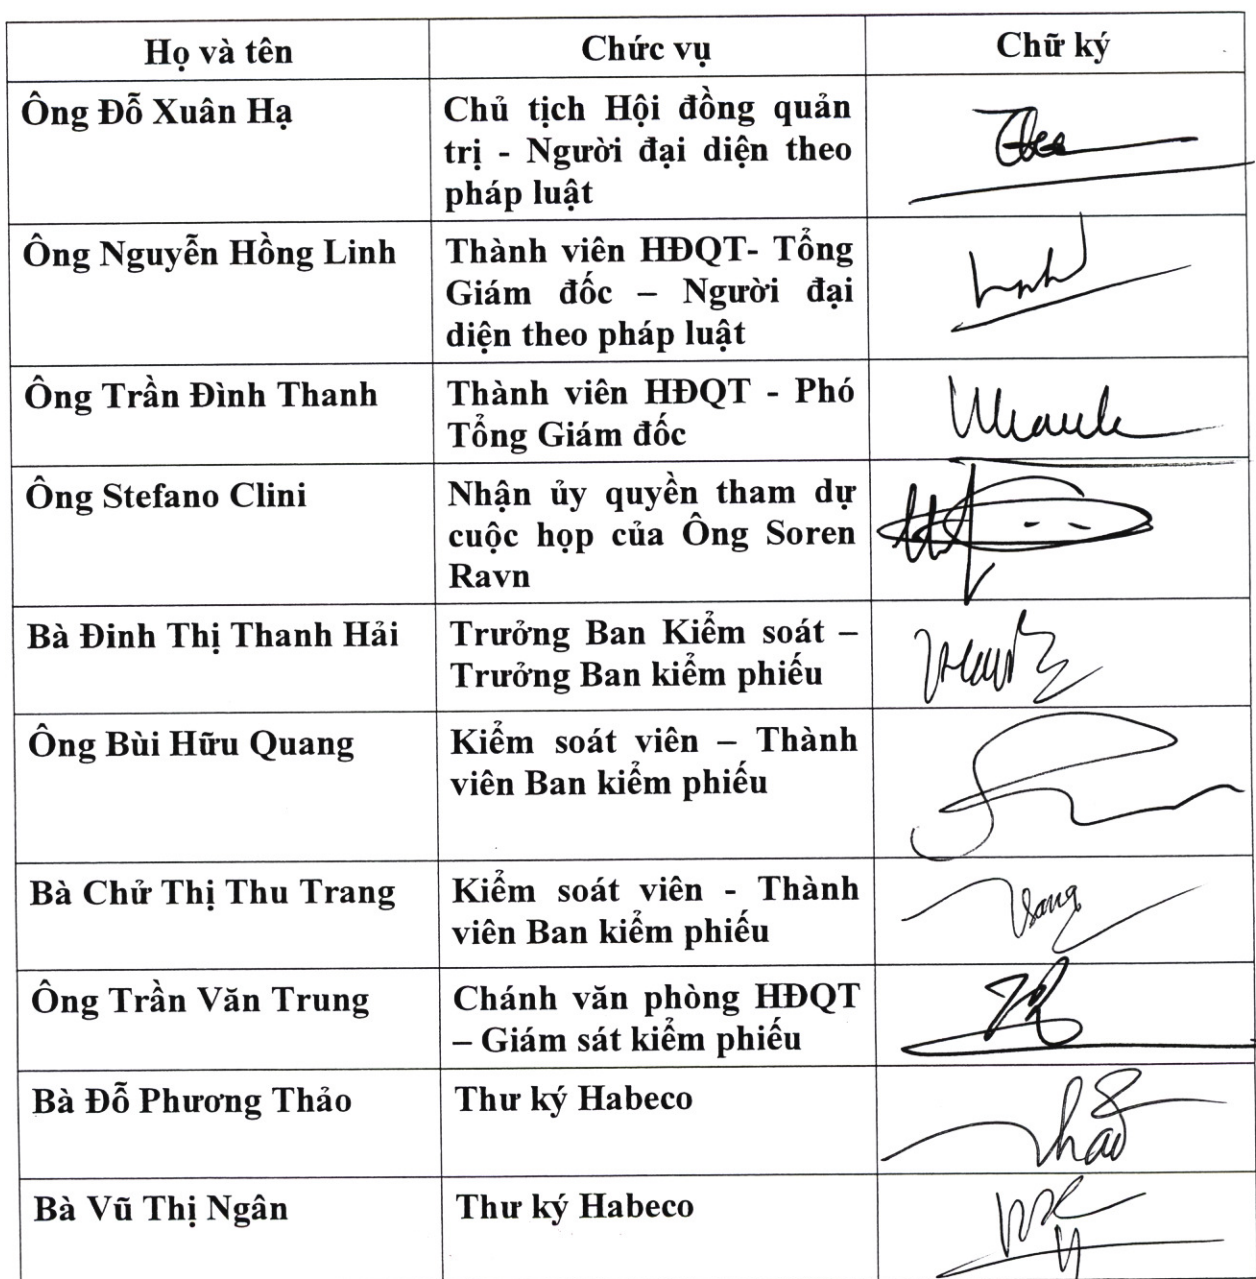 Họ và tên Chức vụ Chữ ký
Ông Đỗ Xuân Hạ Chủ tịch Hội đồng quản
trị - Người đại diện theo
pháp luật
Ông Nguyễn Hồng Linh Thành viên HĐQT- Tổng
Giám đốc – Người đại
diện theo pháp luật
Ông Trần Đình Thanh Thành viên HĐQT - Phó
Tổng Giám đốc
Ông Stefano Clini Nhận ủy quyền tham dự
cuộc họp của Ông Soren
Ravn
Bà Đinh Thị Thanh Hải Trưởng Ban Kiểm soát –
Trưởng Ban kiểm phiếu
Ông Bùi Hữu Quang Kiểm soát viên – Thành
viên Ban kiểm phiếu
Bà Chử Thị Thu Trang Kiểm soát viên - Thành
viên Ban kiểm phiếu
Ông Trần Văn Trung Chánh văn phòng HĐQT
– Giám sát kiểm phiếu
Bà Đỗ Phương Thảo Thư ký Habeco
Bà Vũ Thị Ngân Thư ký Habeco